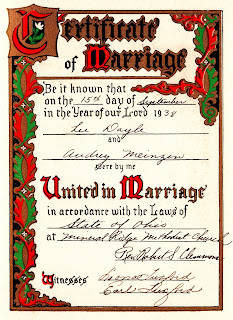 Certificate
of Marriage
Be it known that
on the 15th day of September
in the Year of our Lord 1938
Lee Doyle
and
Audrey Meinzen
were by me
United in Marriage
in accordance with the Laws of
State of Ohio
at Mineral Ridge Methodist Church
Rev. Robert S. Clemmons
Witnesses
Earl